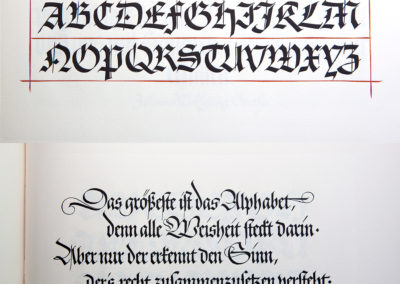 ABCDEFGHIJKLM
NOPQRSTUVWXYZ
Das größeste ist das Alphabet,
denn alle Weisheit steckt darin·
Aber nur der erkennt den Sinn,
der's recht zusammenzusetzen versteht·